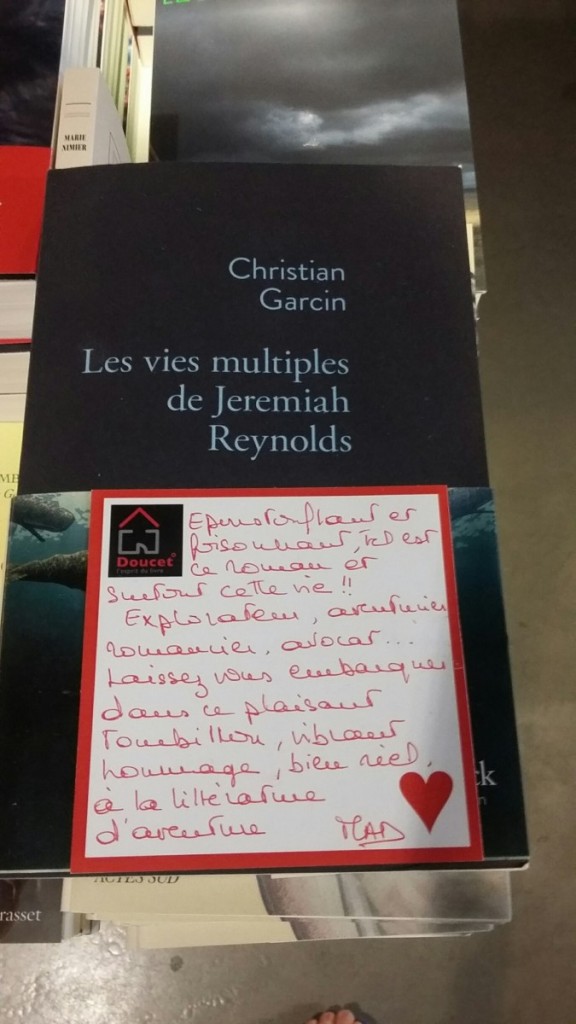 MARIE
NIMIER
Christian
Garcin
Les vies multiples
de Jeremiah
Reynolds
Doucet
l'esprit du livre
Epoustouflant et
foisonnant, tel est
ce roman et
surtout cette vie !!
Explorateur, aventurier
romancier, avocat...
Laissez vous embarquer
dans ce plaisant
tourbillon, vibrant
hommage, bien réel,
à la littérature
d'aventure MAD
ck
ACTES SUD
rasset